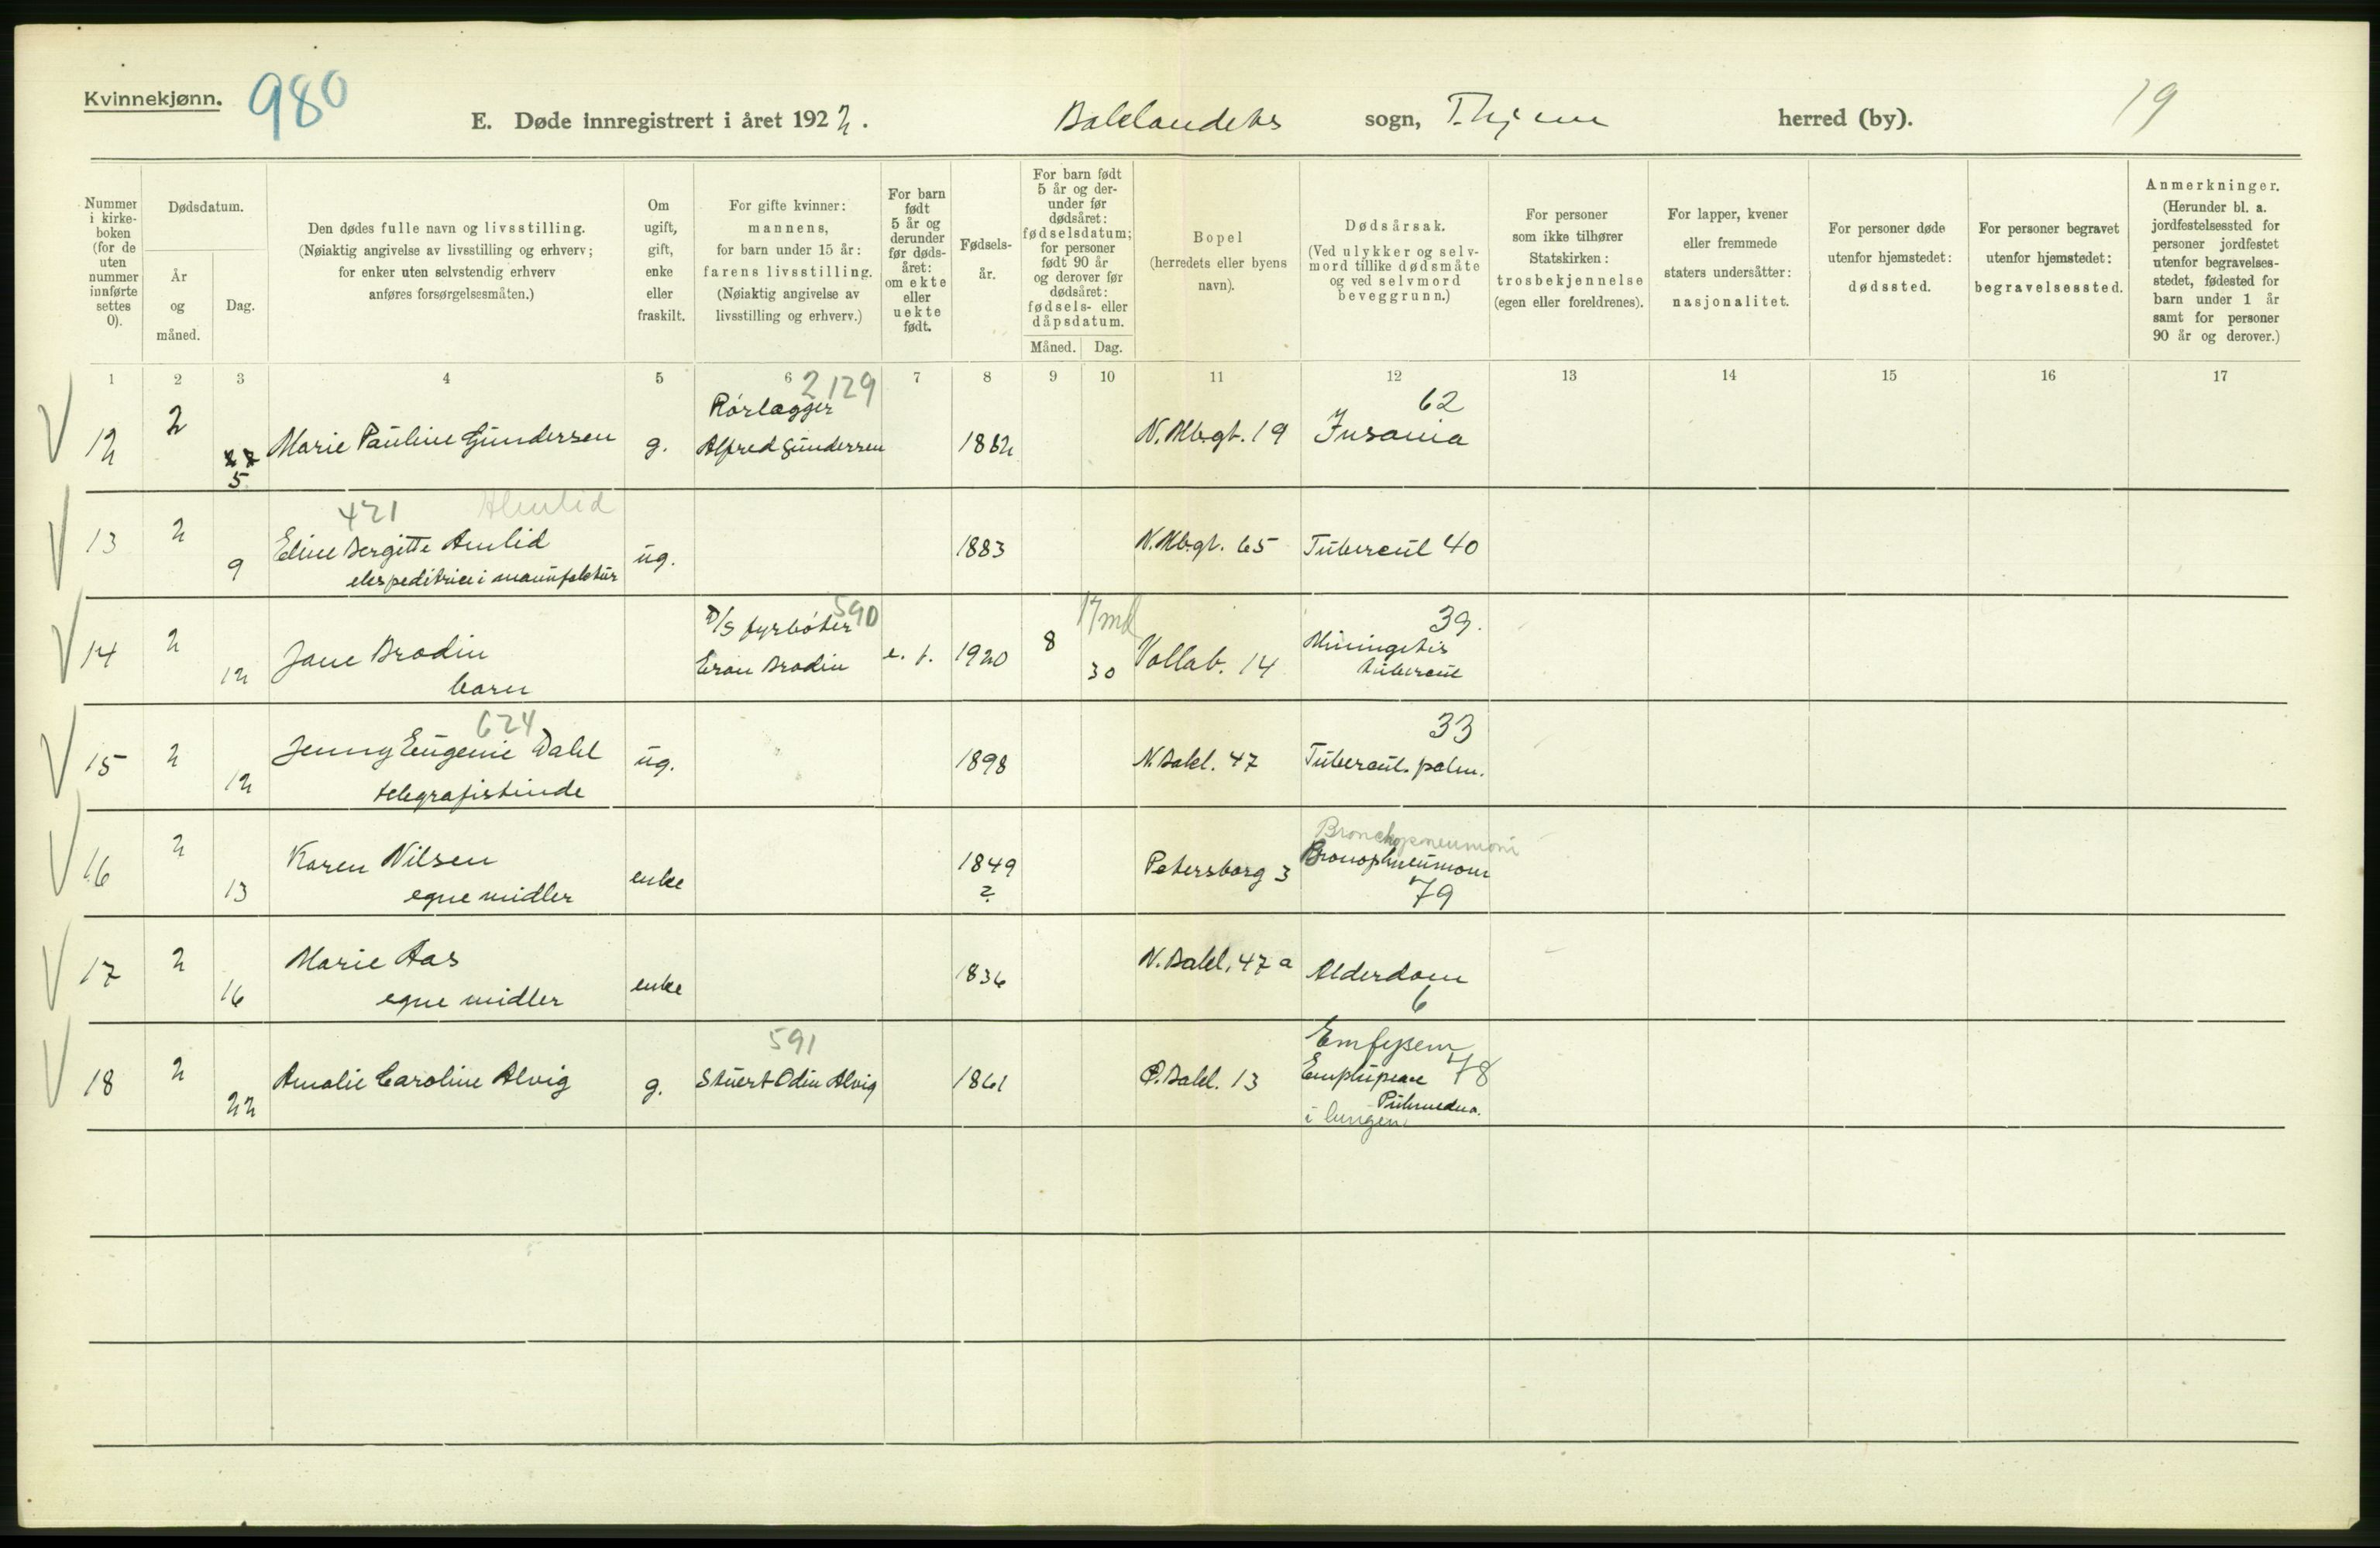 Kvinnekjønn.
980
E. Døde innregistrert i året 1922.
Baklandets sogn, T.hjem herred (by).
19
Nummer i kirke-boken (for de uten nummer innførte settes 0).
Dødsdatum.
År og måned.
Dag.
Den dødes fulle navn og livsstilling.
(Nøiaktig angivelse av livsstilling og erhverv;
for enker uten selvstendig erhverv
anføres forsørgelsesmåten.)
Om ugift, gift, enke eller fraskilt.
For gifte kvinner:
mannens,
for barn under 15 år:
farens livsstilling.
(Nøiaktig angivelse av
livsstilling og erhverv.)
For barn født 5 år og derunder før døds-året: om ekte eller uekte født.
Fødsels-år.
For barn født 5 år og der-under før dødsåret: fødselsdatum; for personer født 90 år og derover før dødsåret: fødsels- eller dåpsdatum.
Måned.
Dag.
Bopel
(herredets eller byens
navn).
Dødsårsak.
(Ved ulykker og selv-
mord tillike dødsmåte
og ved selvmord
beveggrunn.)
For personer
som ikke tilhører
Statskirken:
trosbekjennelse
(egen eller foreldrenes).
For lapper, kvener
eller fremmede
staters undersåtter:
nasjonalitet.
For personer døde
utenfor hjemstedet:
dødssted.
For personer begravet
utenfor hjemstedet:
begravelsessted.
Anmerkninger.
(Herunder bl. a.
jordfestelsessted for
personer jordfestet
utenfor begravelses-
stedet, fødested for
barn under 1 år
samt for personer
90 år og derover.)
1 2 3 4 5 6 7 8 9 10 11 12 13 14 15 16 17
2129
Rörlægger 62
12 2 5 Marie Pauline Gundersen g. Alfred Gundersen 1882 N. Mbgt. 19 Insania
421 Almlid
13 2 9 Eline Bergitte Amlid ug. 1883 N. Mbgt. 65 Tubercul 40
ekspeditrice i manufaktur
590 17 md 39.
D/S fyrböter
14 2 12 Jane Brodin Eron Brodin e. f. 1920 8 30 Vollab. 14 Miningitis
barn tubercul
624 33
15 2 12 Jenny Eugenie Dahl ug. 1898 N. Bakl. 47 Tubercul. polm.
telegrafistinde
Bronchopneumoni
16 2 13 Karen Nilsen enke 1849 Petersborg 3 Bronophneumoni
egne midler ? 79
17 2 16 Marie Aas enke 1836 N. Bakl. 47 a Alderdom
egne midler 6
591 Emfysem
18 2 22 Amalie Caroline Alvig g. Stuert Odin Alvig 1861 Ø. Bakl. 13 78
i lungen